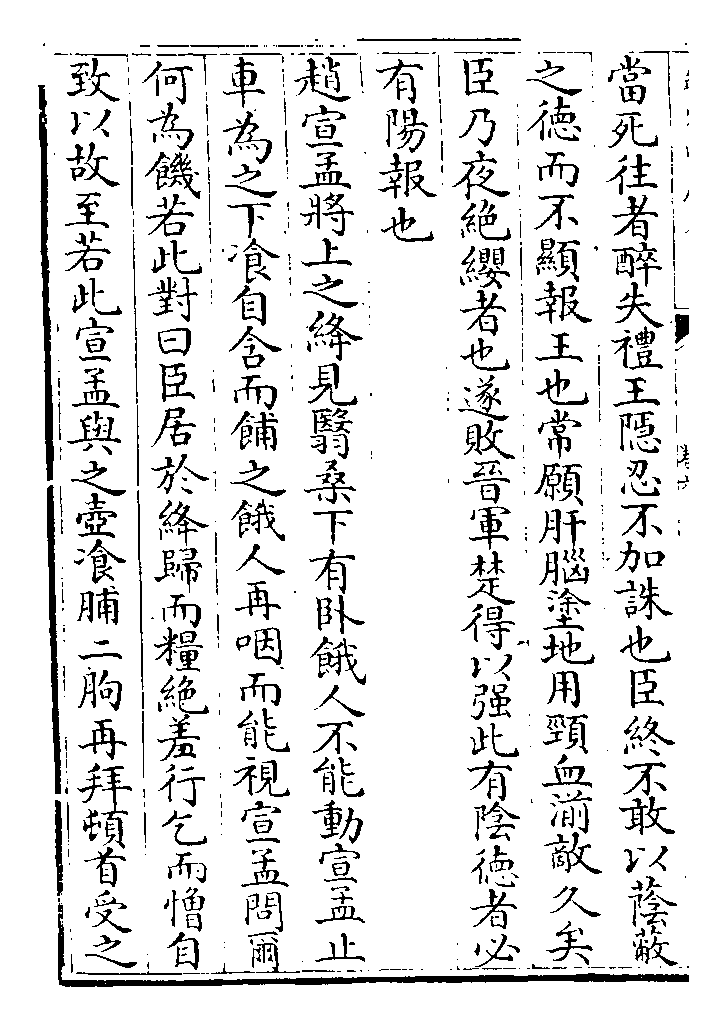 當死往者醉失禮王隱忍不加誅也臣終不敢以蔭蔽
之徳而不顯報王也常願肝腦塗地用頸血湔敵久矣
臣乃夜絶纓者也遂敗晉軍楚得以强此有陰徳者必
有陽報也
趙宣孟將上之絳見翳桑下有卧餓人不能動宣孟止
車為之下飡自含而餔之餓人再咽而能視宣孟問爾
何為饑若此對曰臣居於絳歸而糧絶羞行乞而憎自
致以故至若此宣孟與之壺飡脯二朐再拜頓首受之